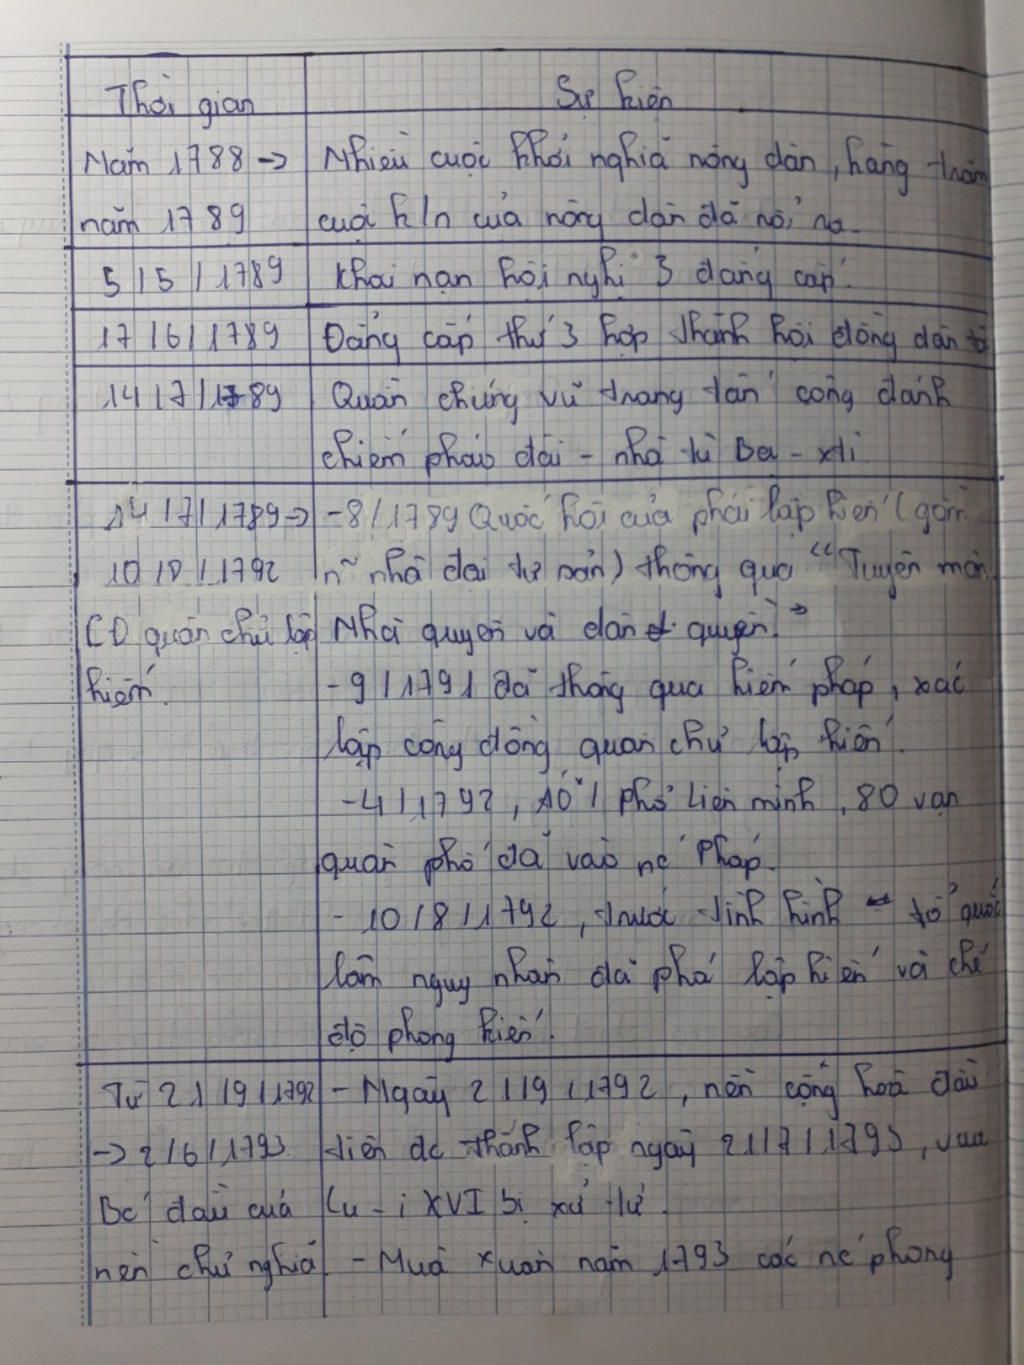 Thời gian
Sự kiện
Năm 1788 → Nhiều cuộc khởi nghĩa nông dân, hàng trăm
năm 1789 cuộc k/n của nông dân đã nổi ra.
5/5/1789 Khai mạc hội nghị 3 đẳng cấp.
17/6/1789 Đẳng cấp thứ 3 họp thành hội đồng dân tộ
14/7/1789 Quần chúng vũ trang tấn công đánh
chiếm pháo đài - nhà tù Ba-xti
14/7/1789 → - 8/1789 Quốc hội của phái lập hiến (gồm
10/8/1792 n~ nhà đại tư sản) thông qua "Tuyên môn
CĐ quân chủ lập Nhơi quyền và dân quyền."
hiến. - 9/1791 đã thông qua hiến pháp, xác
lập cộng đồng quân chủ lập hiến.
- 4/1792, Áo / phổ liên minh, 80 vạn
quân phổ đã vào nc Pháp.
- 10/8/1792, trước tình hình tổ quốc
lâm nguy nhân dã phá lập hiến và chế
độ phong kiến.
Từ 21/9/1792 - Ngày 21/9/1792, nền cộng hoà đầu
→ 2/6/1793 tiên đc thành lập ngày 21/7/1793, vua
Bc đầu của Lu-i XVI bị xử tử.
nền chủ nghĩa - Mùa xuân năm 1793 các nc phong